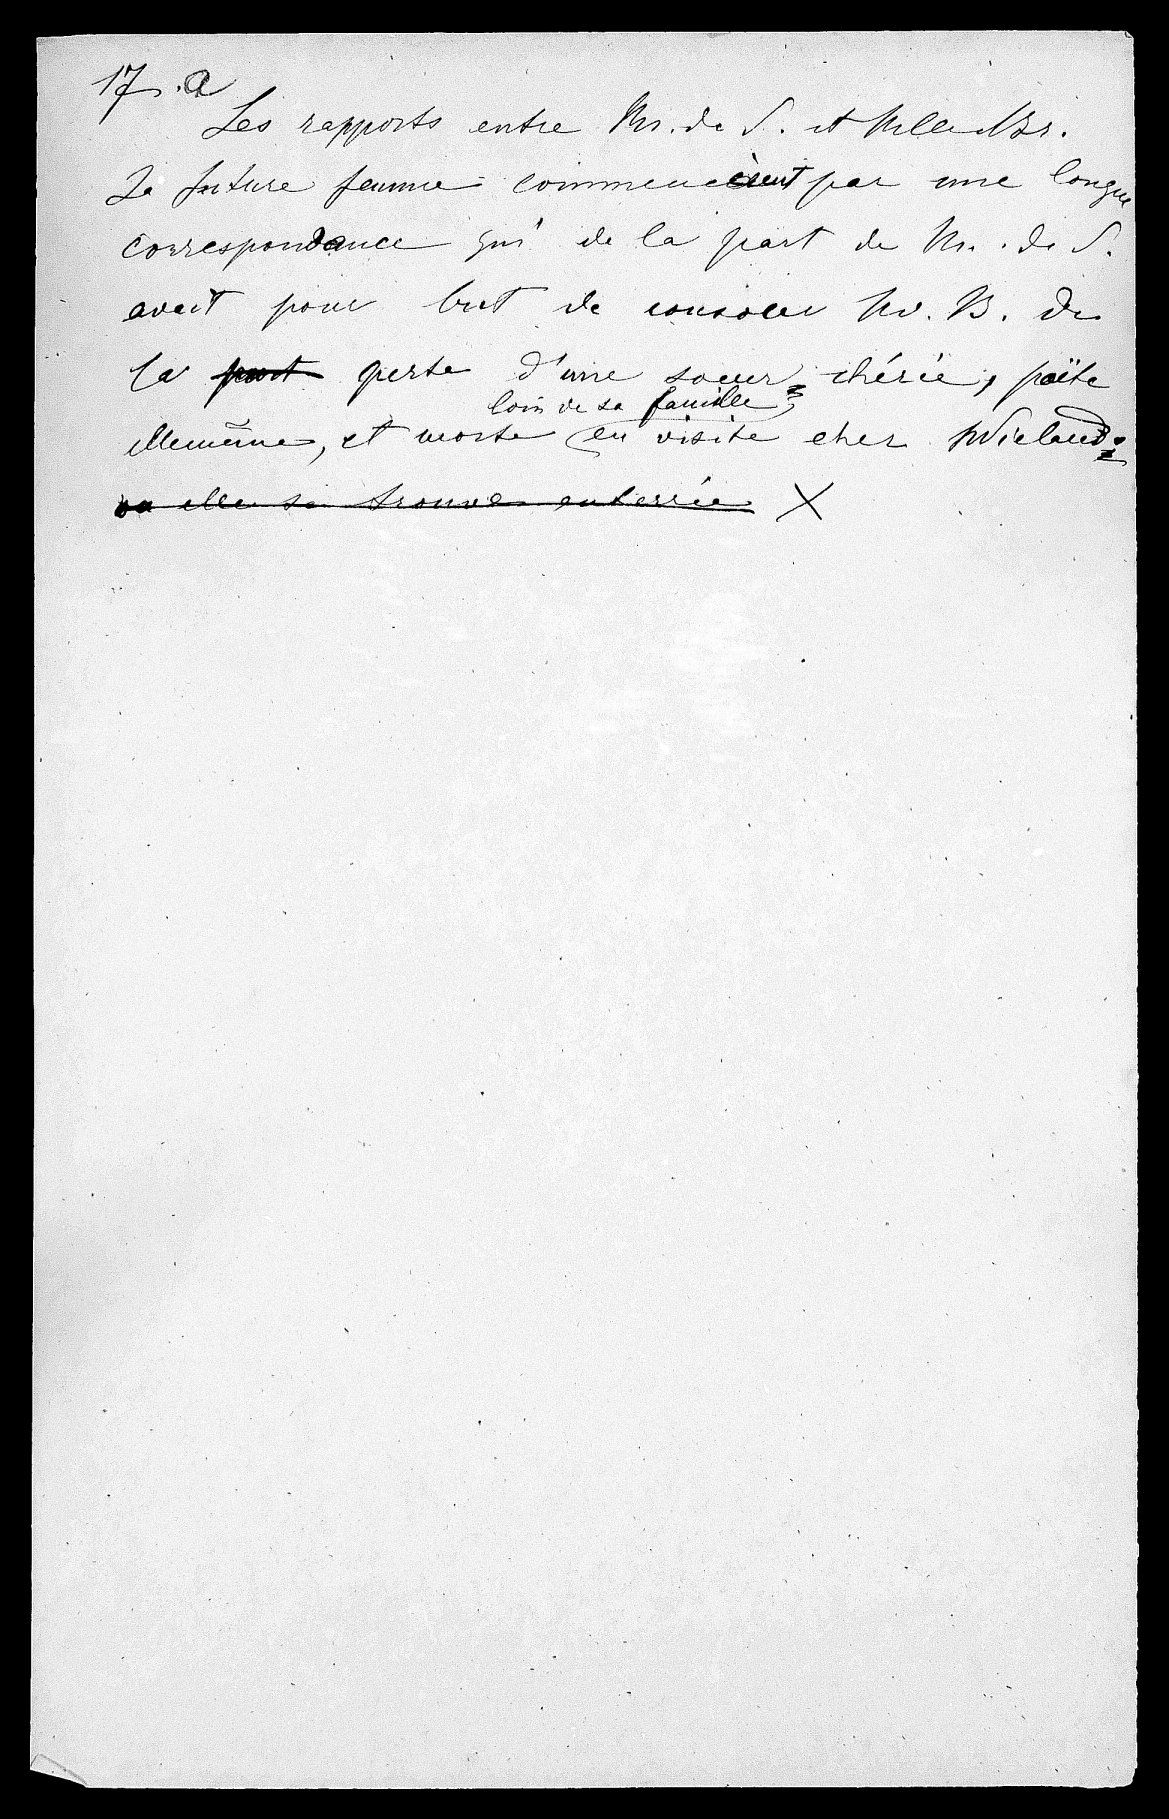 17. a
Les rapports entre Mr. de S. et Melle de Br.
Sa future femme commencèrent par une longue
correspondance qui de la part de Mr. de S.
avait pour but de consoler M. B. de
la part perte d'une soeur chérie, poëte
loin de sa famille,
ellemême, et morte en visite chez Wieland.
où elle se trouve enterrée X